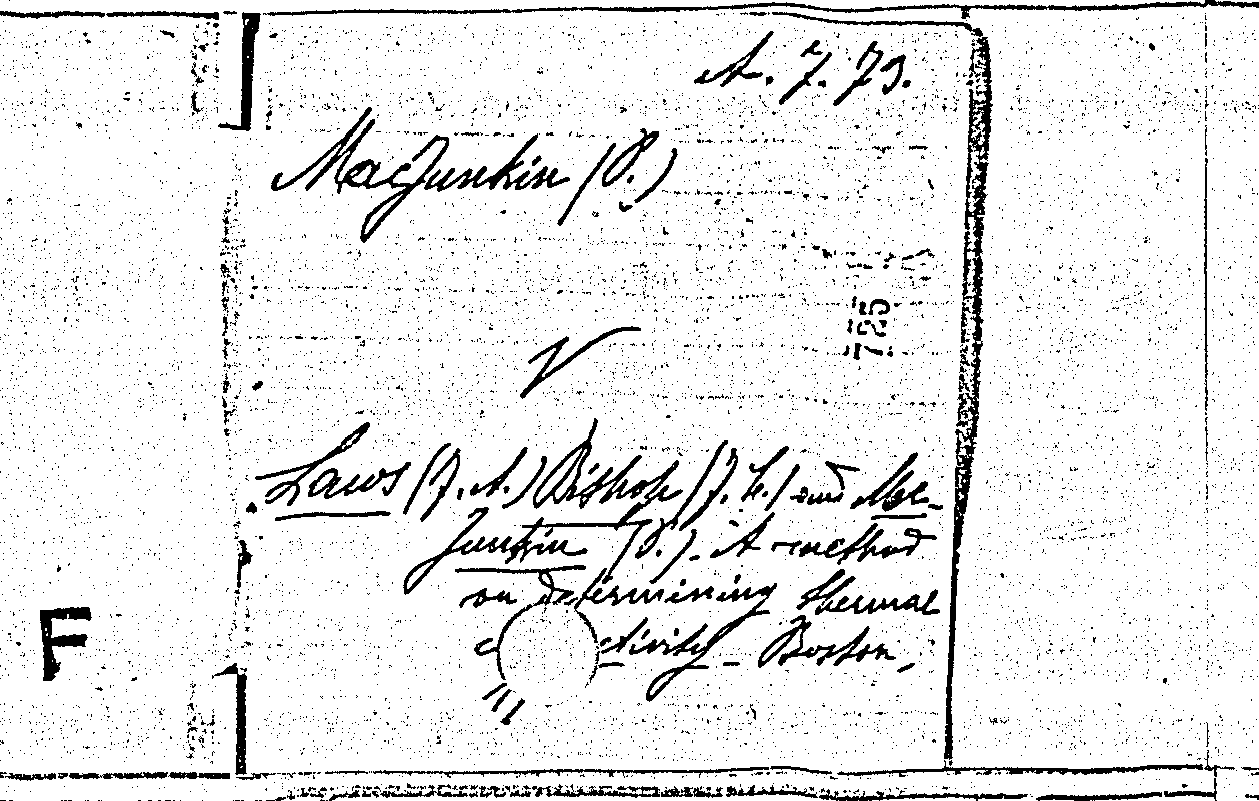 A. 7. 79.
MacJunkin (P.)
V
725
Laws (F. A.) Bishop (F. L.) and Mc-
Junkin (P.). A method
on determining thermal
c ctivity _ Boston,
F